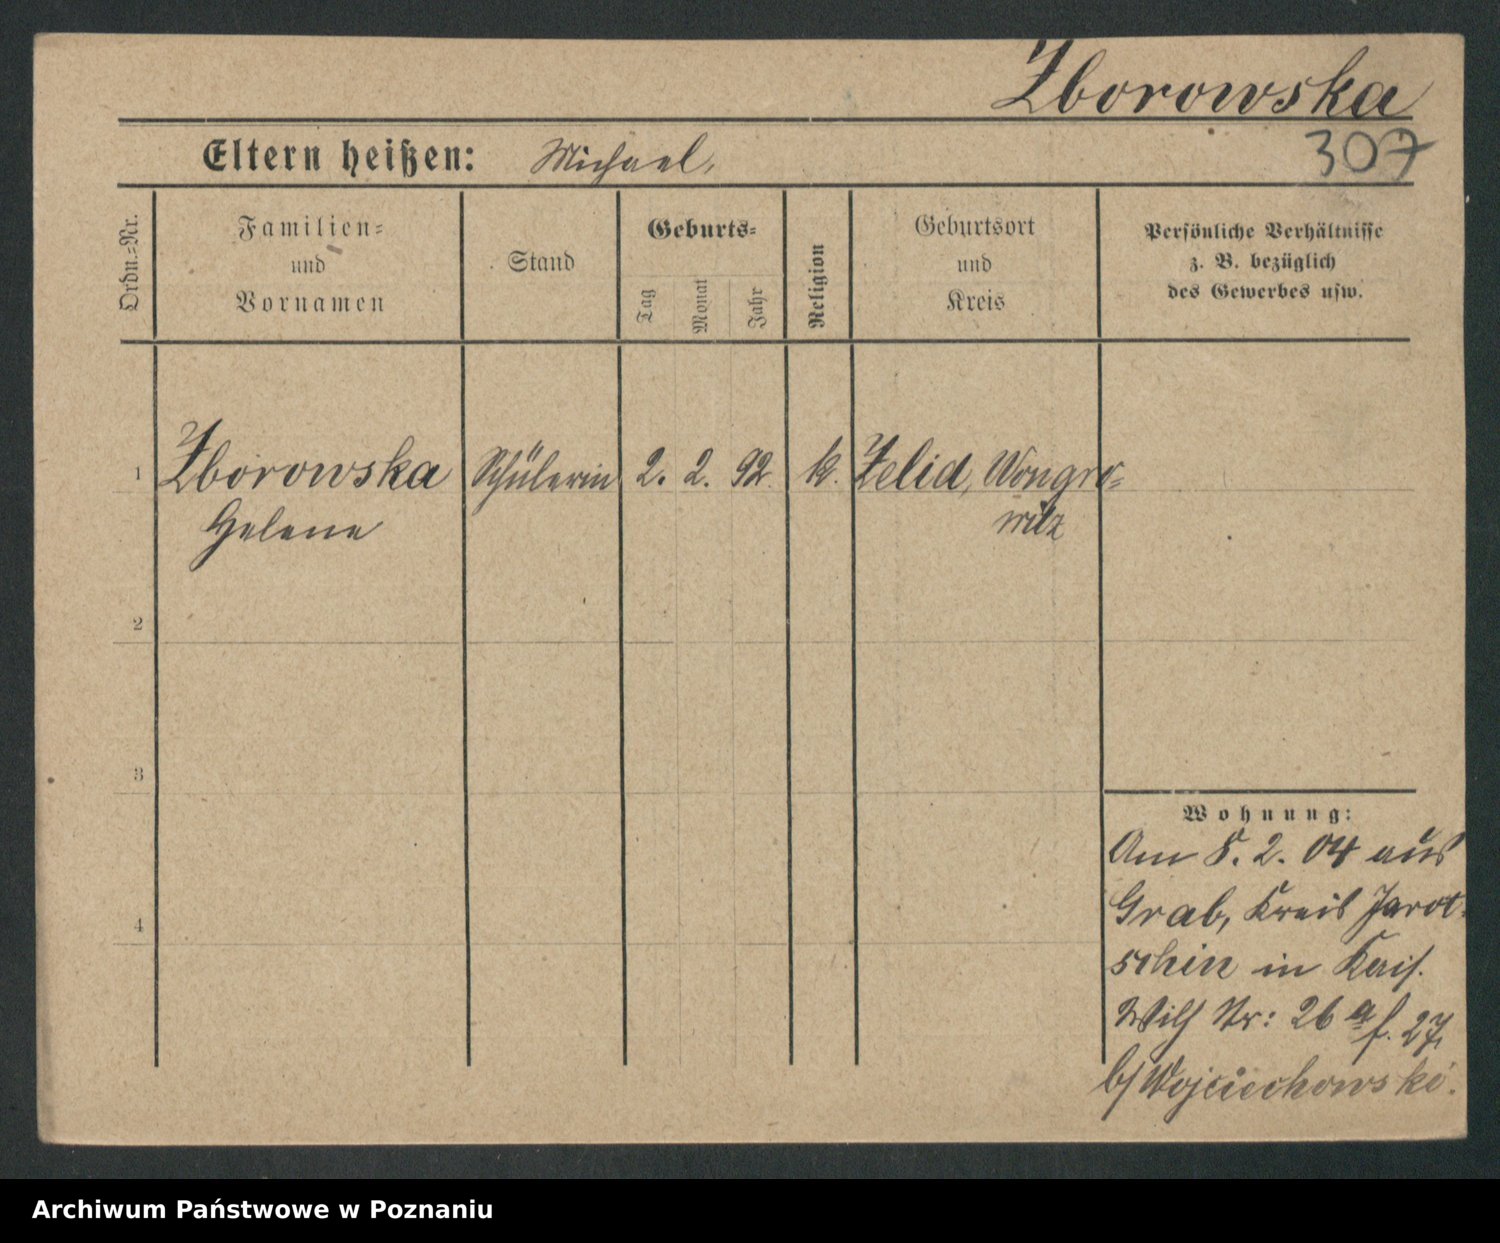 Zborowska
Eltern heißen: Michael,
307
Ordn.-Nr.
Familien-
und
Vornamen
Stand
Geburts-
Tag
Monat
Jahr
Religion
Geburtsort
und
Kreis
Persönliche Verhältnisse
z. B. bezüglich
des Gewerbes usw.
1 Zborowska Schülerin 2. 2. 92. k. Zelid, Wongro-
Helene witz
2
3
4
Wohnung:
Am 5. 2. 04 aus
Grab, Kreis Jarot-
schin in Kais.
Wilh Str: 26 a f. 27,
b/ Wojciechowski.
Archiwum Państwowe w Poznaniu